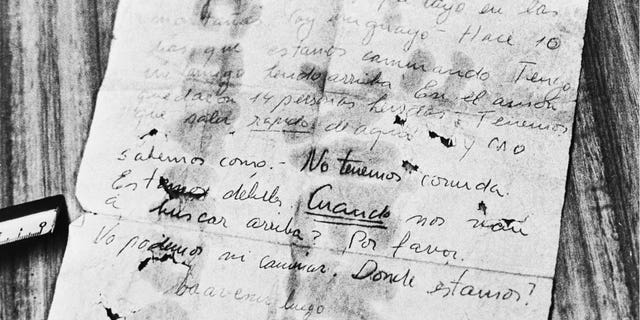 que cayó en las
montañas. Soy uruguayo - Hace 10
días que estamos caminando. Tengo
un amigo herido arriba. En el avión
quedaron 14 personas heridas. Tenemos
que salir rápido de aquí y no
sabemos cómo. - No tenemos comida.
Estamos débiles. Cuando nos van
a buscar arriba? Por favor.
No podemos ni caminar. Donde estamos?